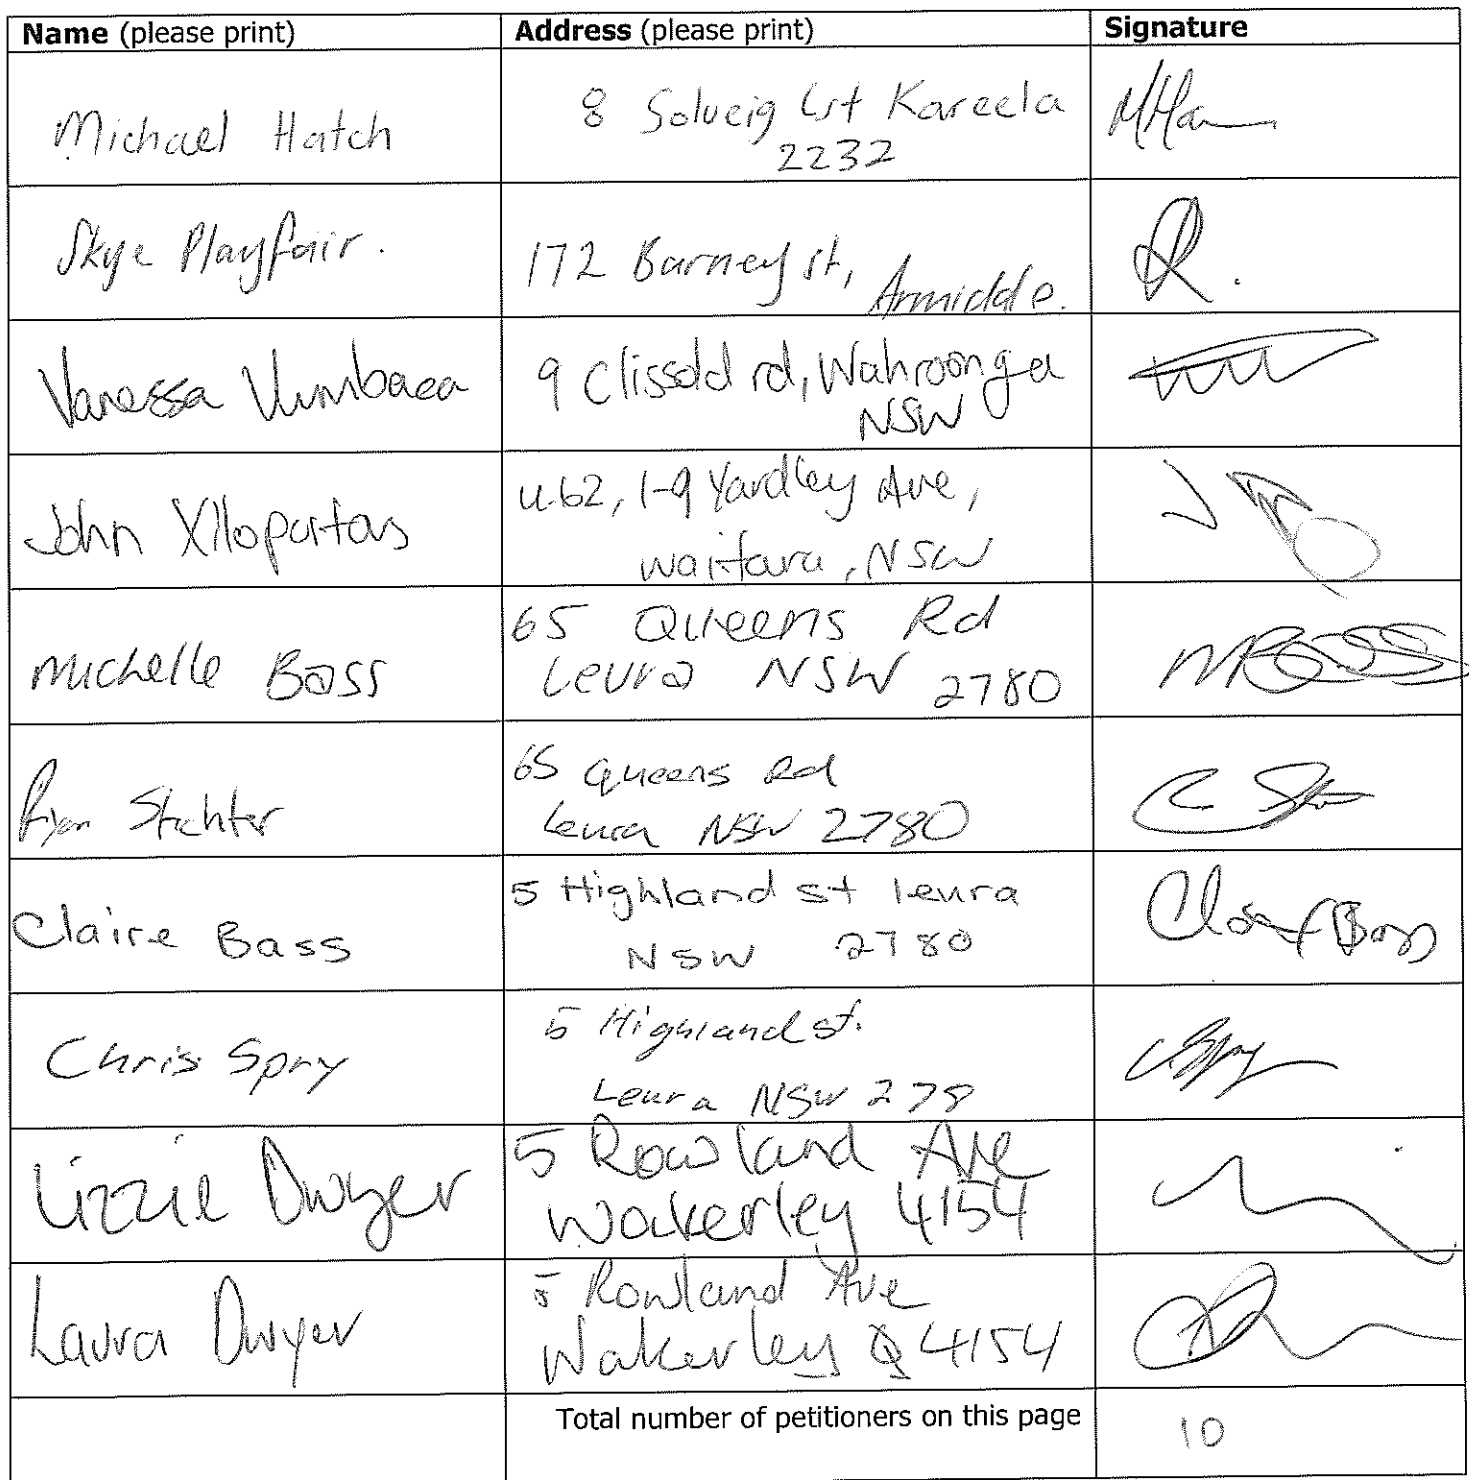 Name (please print) Address (please print) Signature
Michael Hatch 8 Solveig Crt Kareela
2232
Skye Playfair. 172 Barney st, Armidale.
Vanessa 9 Clissold rd, Wahroonga
NSW
John u.62, 1-9 Yardley Ave,
Waitara, NSW
Michelle Bass 65 Queens Rd
Leura NSW 2780
Ryan 65 Queens Rd
Leura NSW 2780
Claire Bass 5 Highland st leura
NSW 2780
Chris Spry 5 Highland st.
Leura NSW 278
Lizzie Dwyer 5 Rowland Ave
Wakerley 4154
Laura Dwyer 5 Rowland Ave
Wakerley Q 4154
Total number of petitioners on this page 10